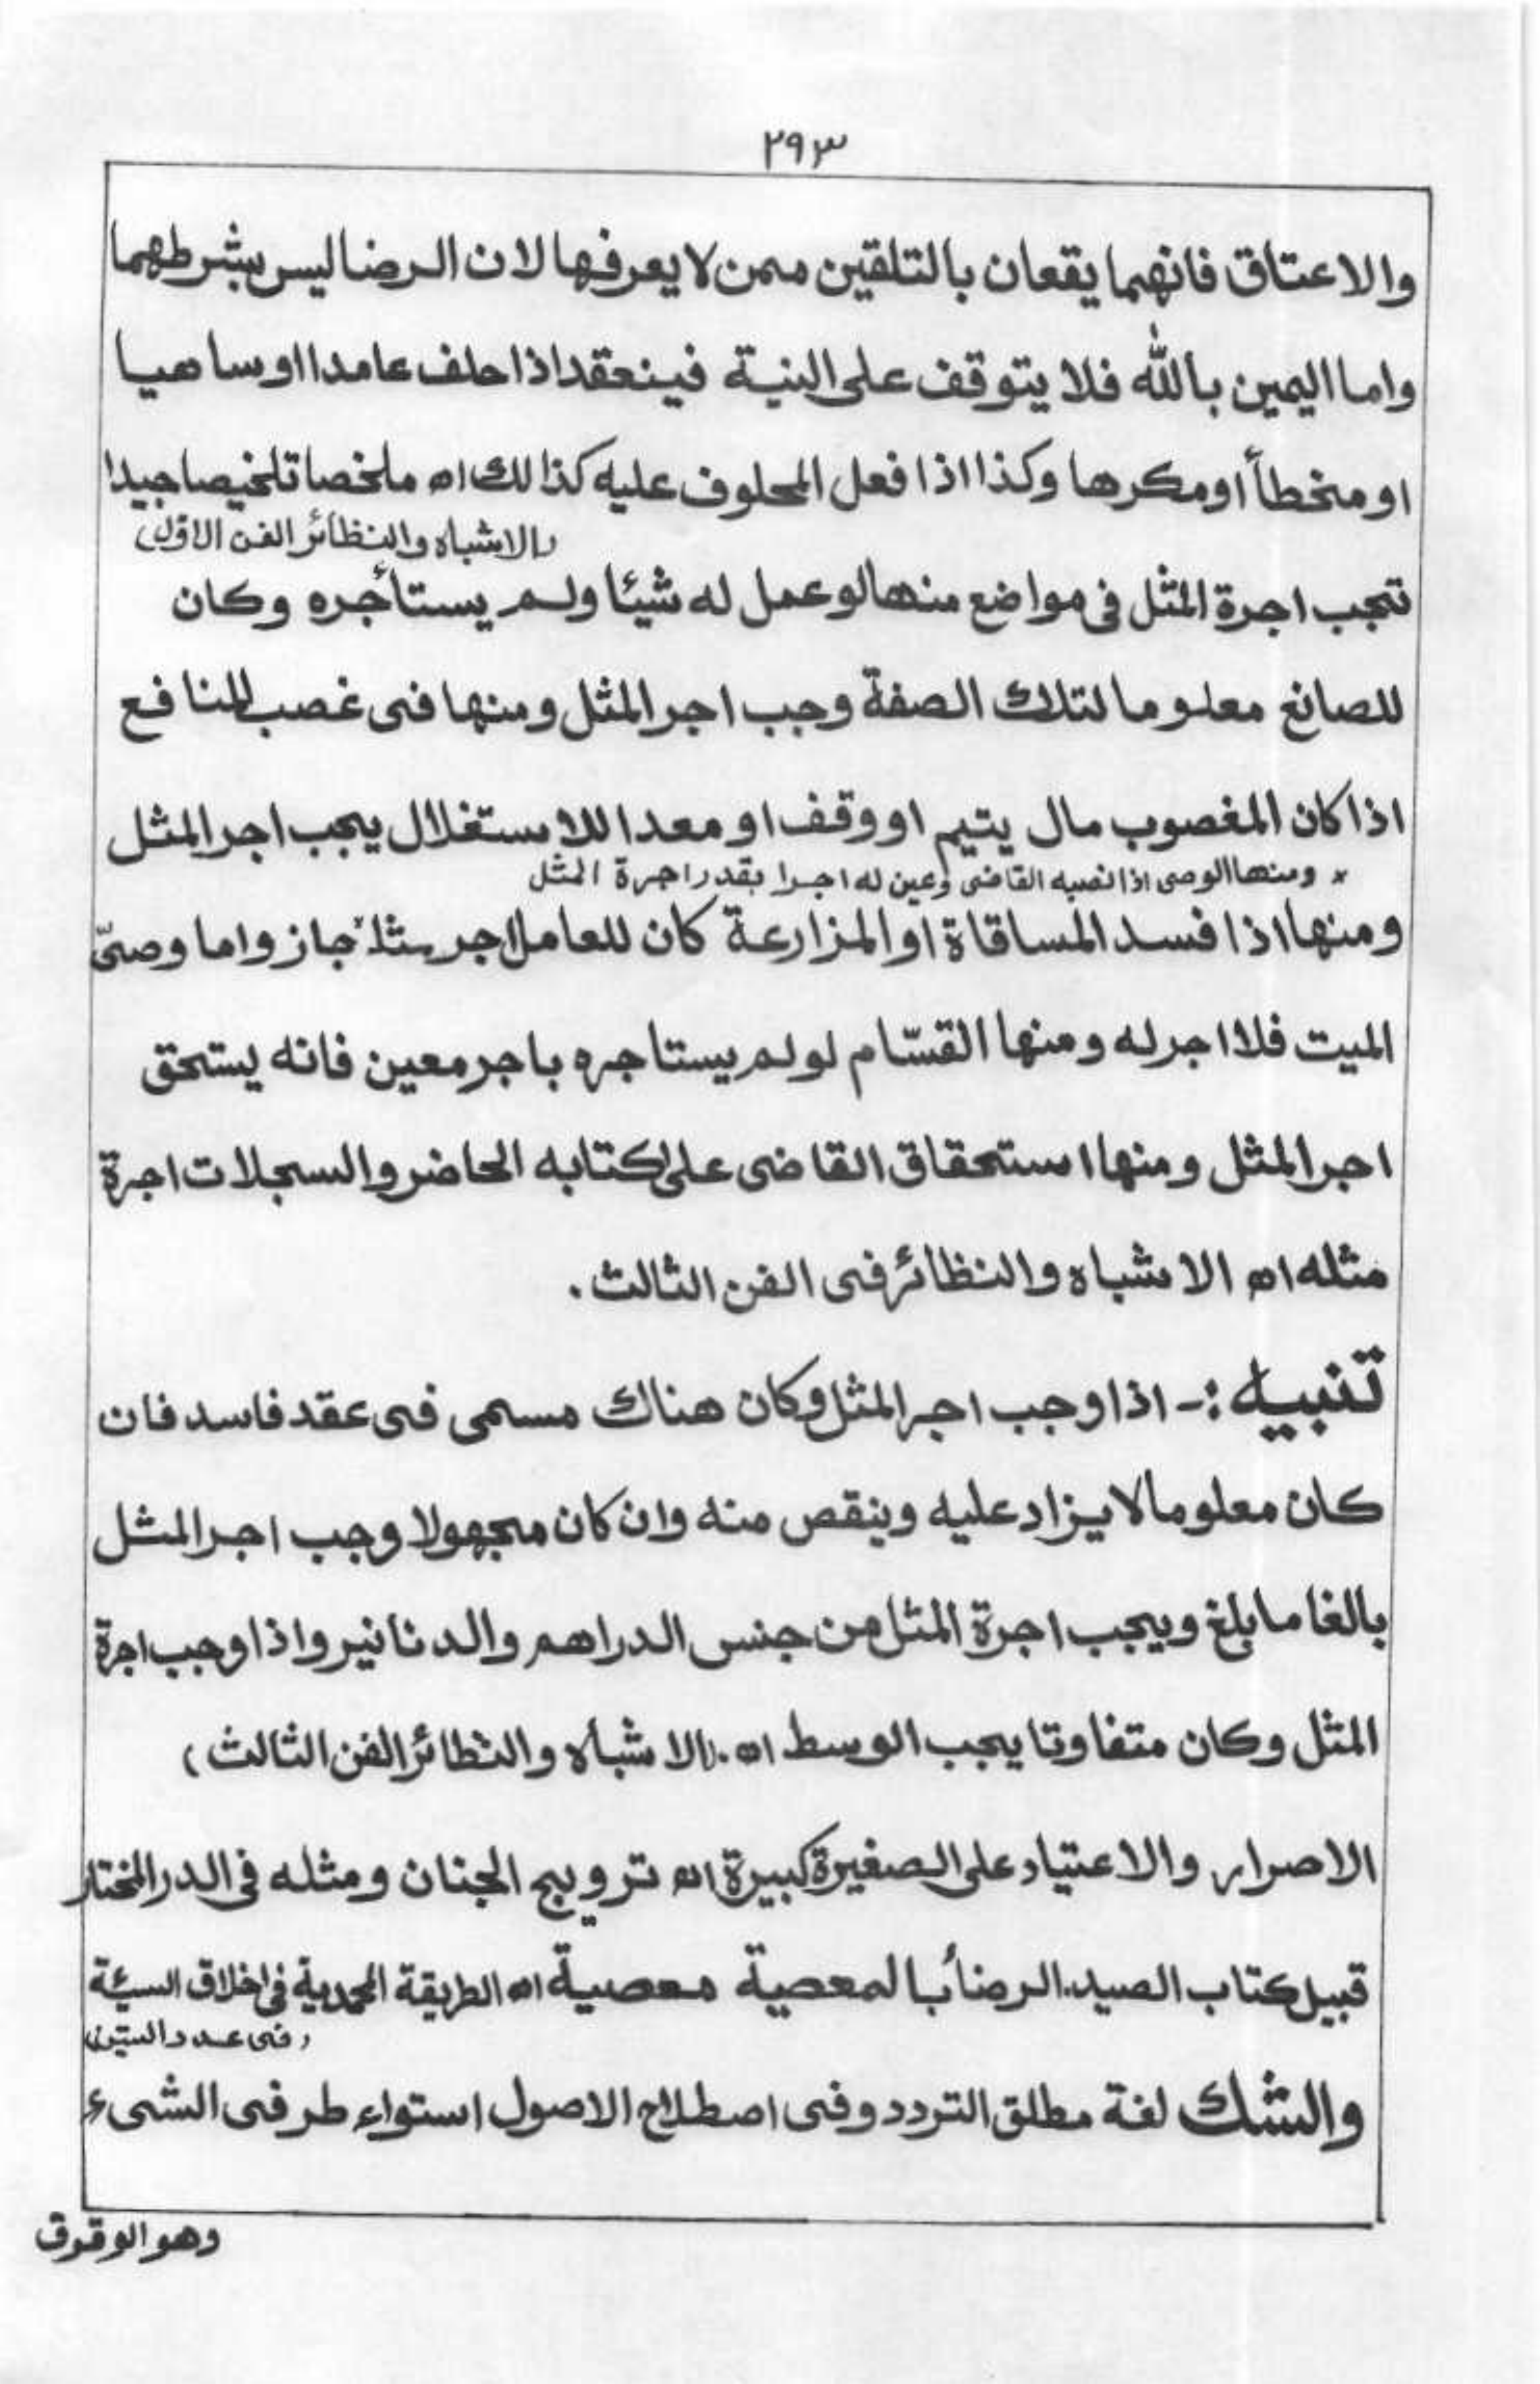 ٢٩٣
والاعتاق فانهما يقعان بالتلقين ممن لا يعرفها لان الرضا ليس بشرطهما
واما اليمين بالله فلا يتوقف على النية فينعقد اذا حلف عامدا او ساهيا
او مخطأ او مكرها وكذا اذا فعل المحلوف عليه كذالك اه ملخصا تلخيصا جيدا
(الاشباه والنظائر الفن الاوّل)
تجب اجرة المثل فى مواضع منها لو عمل له شيئا ولم يستأجره وكان
للصانع معلوما لتلك الصفة وجب اجر المثل ومنها فى غصب المنافع
اذا كان المغصوب مال يتيم او وقف او معدا للاستغلال يجب اجر المثل
× ومنها الوصى اذا نصبه القاضى وعين له اجرا بقدر اجرة المثل
ومنها اذا فسد المساقاة او المزارعة كان للعامل اجر مثله × جاز واما وصىّ
الميت فلا اجر له ومنها القسّام لو لم يستاجره باجر معين فانه يستحق
اجر المثل ومنها استحقاق القاضى على كتابه الحاضر والسجلات اجرة
مثله اه الاشباه والنظائر فى الفن الثالث .
تنبيه :- اذا وجب اجر المثل وكان هناك مسمى فى عقد فاسد فان
كان معلوما لا يزاد عليه وينقص منه وان كان مجهولا وجب اجر المثل
بالغا ما بلغ ويجب اجرة المثل من جنس الدراهم والدنانير واذا وجب اجرة
المثل وكان متفاوتا يجب الوسط اه . (الاشباه والنظائر الفن الثالث)
الاصرار والاعتياد على الصغيرة كبيرة اه ترويج الجنان ومثله فى الدر المختار
قبيل كتاب الصيد. الرضأ بالمعصية معصية اه الطريقة المحمدية فى اخلاق السيئة
(فى عدد الستين)
والشك لغة مطلق التردد وفى اصطلاح الاصول استواء طرفى الشىء
وهو الوقوف